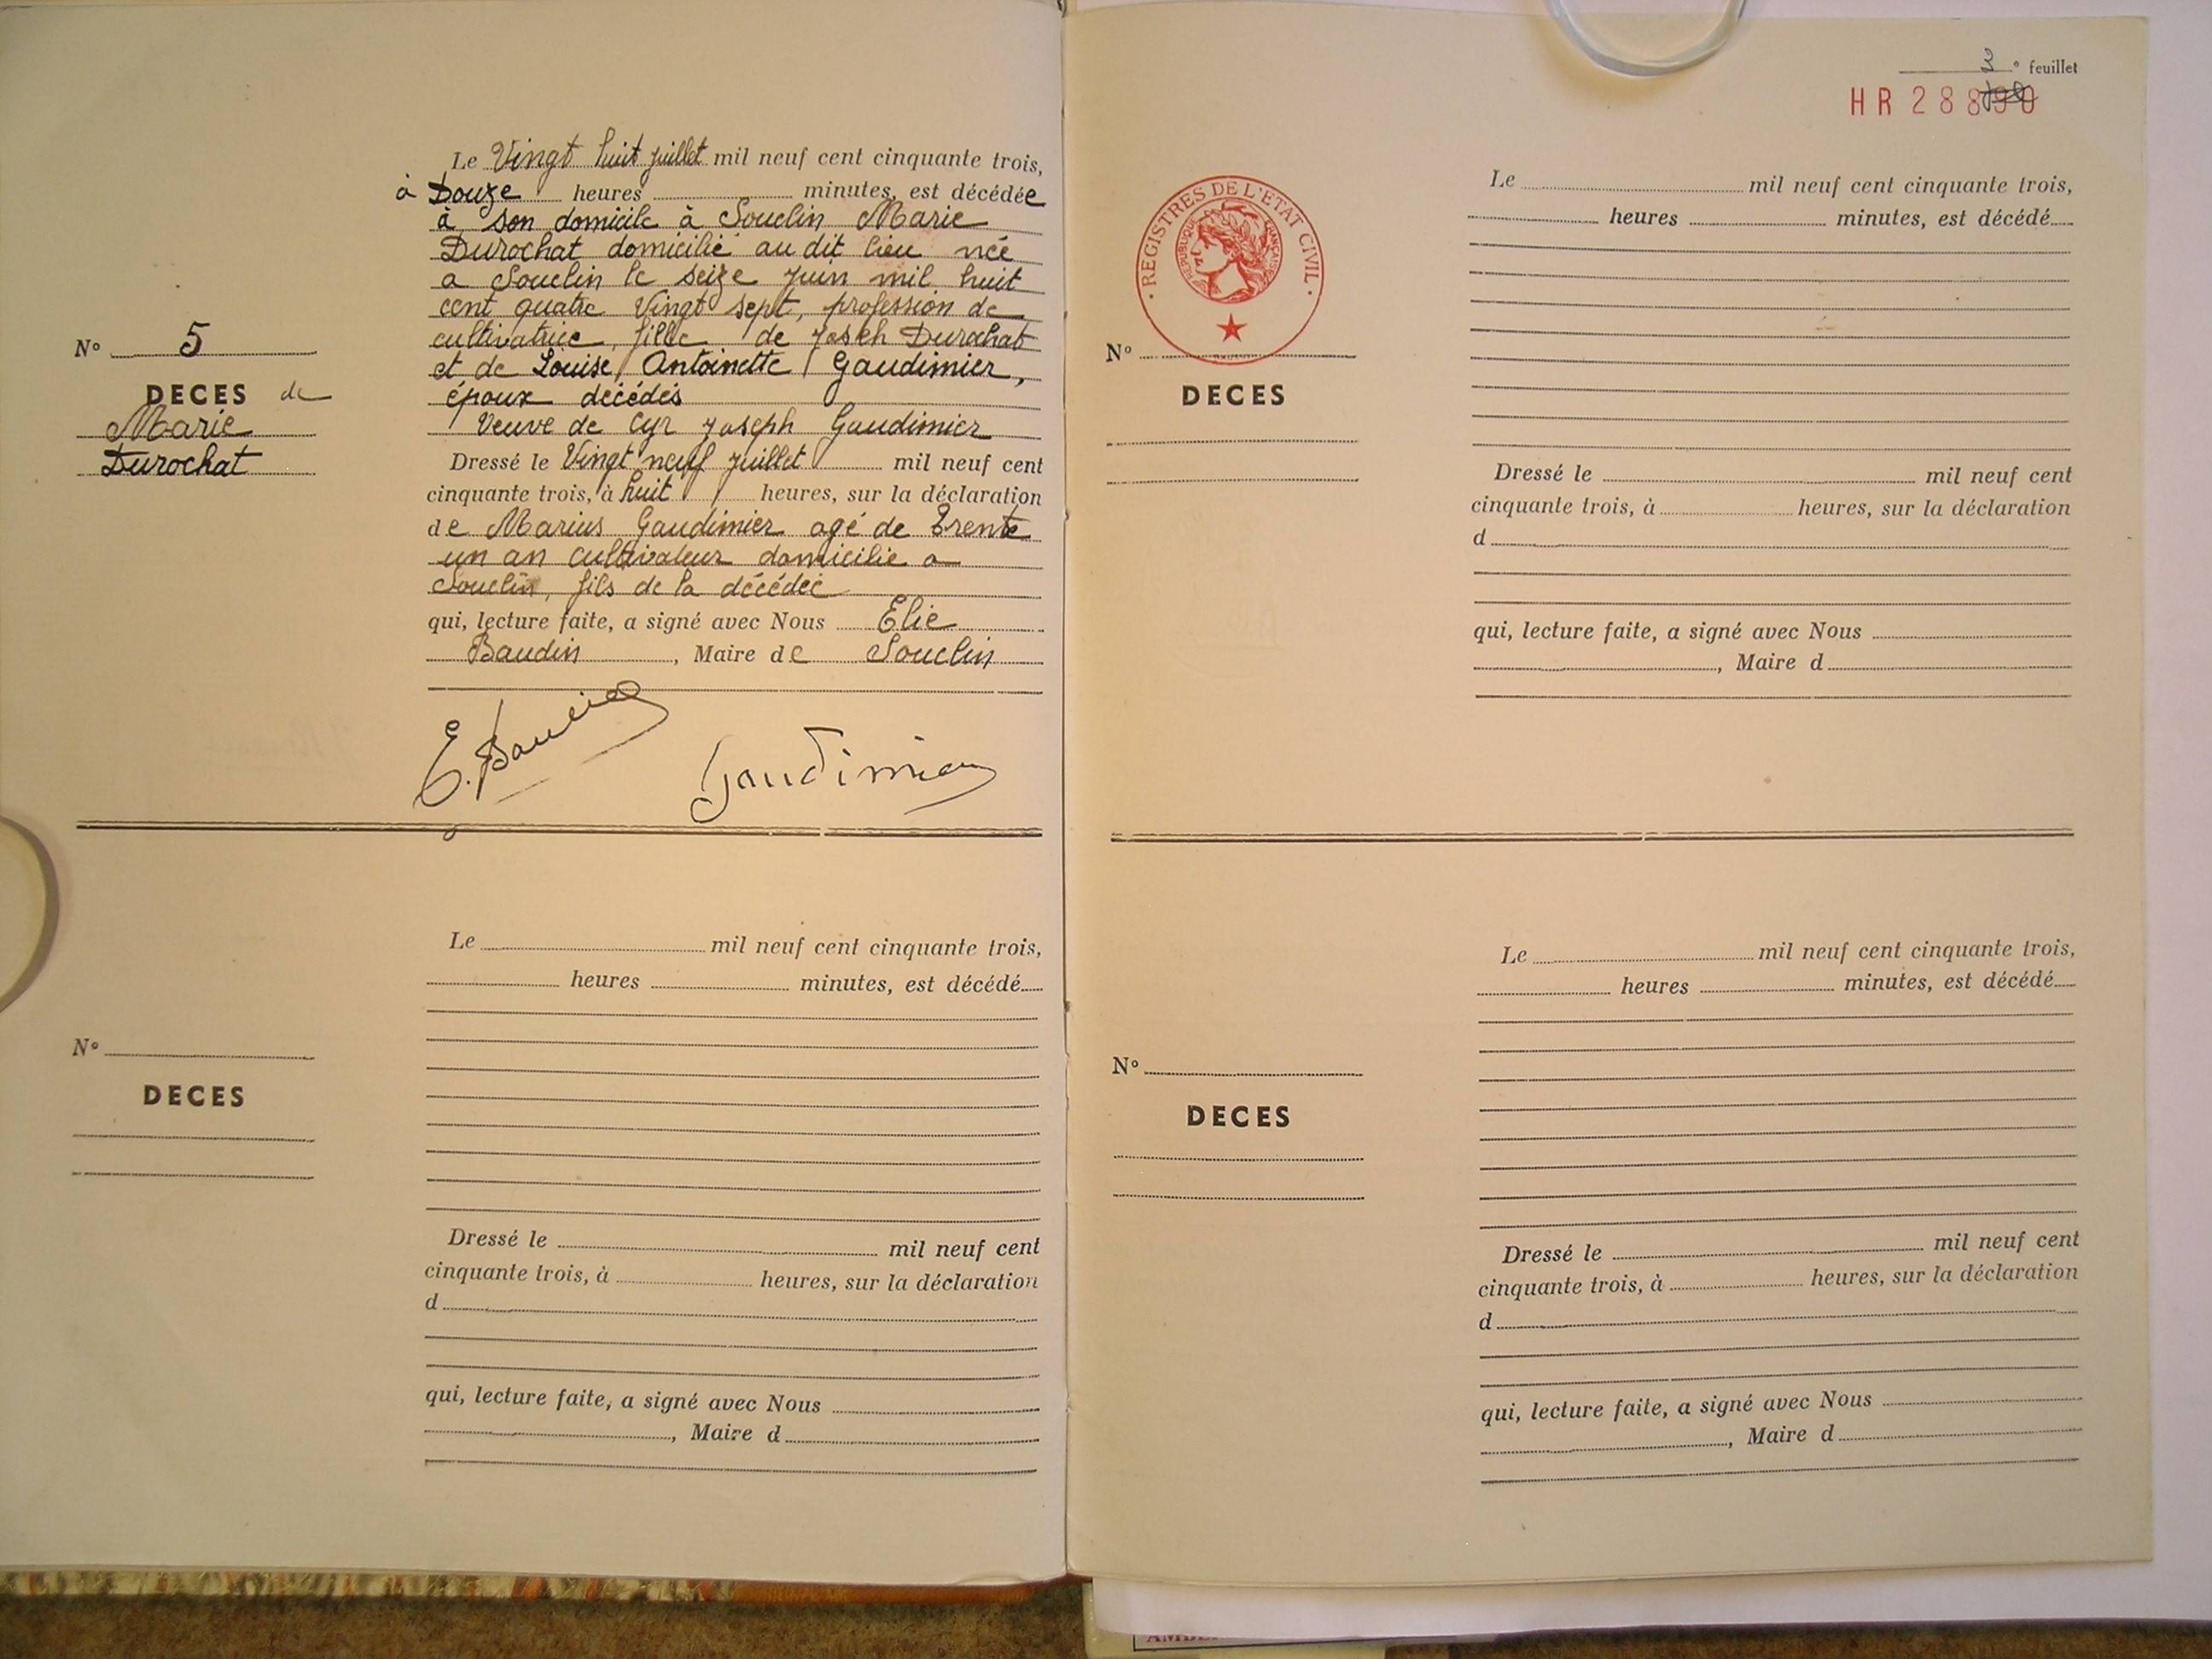 Le Vingt huit juillet mil neuf cent cinquante trois,
à Douze heures minutes, est décédée
à son domicile à Souclin Marie
Durochat domicilié au dit lieu née
a Souclin le seize juin mil huit
cent quatre Vingt sept, profession de
cultivatrice, fille de Joseh Durochat
et de Louise Antoinette Gaudimier,
époux décédés
Veuve de Cyr Joseph Gaudimier
N° 5
DECES de
Marie
Durochat
Dressé le Vingt neuf juillet mil neuf cent
cinquante trois, à huit heures, sur la déclaration
de Marius Gaudimier agé de trente
un an cultivateur domicilie a
Souclin, fils de la décédée
qui, lecture faite, a signé avec Nous Elie
Baudin, Maire de Souclin
E. Baudin
Gaudimier
Le mil neuf cent cinquante trois,
heures minutes, est décédé
N°
DECES
Dressé le mil neuf cent
cinquante trois, à heures, sur la déclaration
d
qui, lecture faite, a signé avec Nous
, Maire d
3e feuillet
HR 28890
REGISTRES DE L'ETAT CIVIL
REPUBLIQUE FRANÇAISE
Le mil neuf cent cinquante trois,
heures minutes, est décédé
N°
DECES
Dressé le mil neuf cent
cinquante trois, à heures, sur la déclaration
d
qui, lecture faite, a signé avec Nous
, Maire d
Le mil neuf cent cinquante trois,
heures minutes, est décédé
N°
DECES
Dressé le mil neuf cent
cinquante trois, à heures, sur la déclaration
d
qui, lecture faite, a signé avec Nous
, Maire d